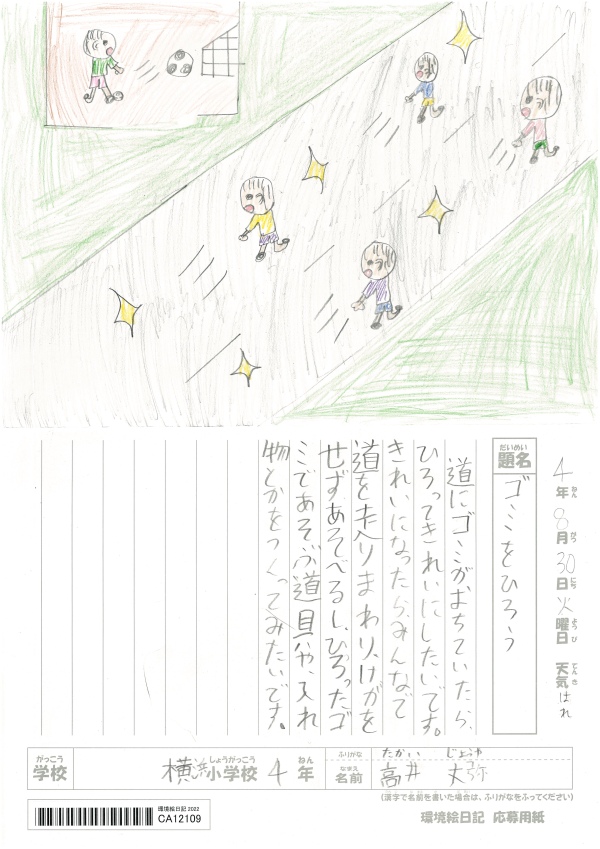 4年8月30日火曜日 天気はれ
ねん がつ にち ようび てんき
だいめい
題名
ゴミをひろう
道にゴミがおちていたら、
ひろってきれいにしたいです。
きれいになったら、みんなで
道を走りまわり、けがを
せずあそべるし、ひろったゴ
ミであそぶ道具や、入れ
物とかをつくってみたいです。
がっこう
学校
しょうがっこう ねん
横浜小学校 4年
ふりがな
たかい じょうや
なまえ
名前
高井 丈弥
(漢字で名前を書いた場合は、ふりがなをふってください)
環境絵日記 2022
CA12109
環境絵日記 応募用紙